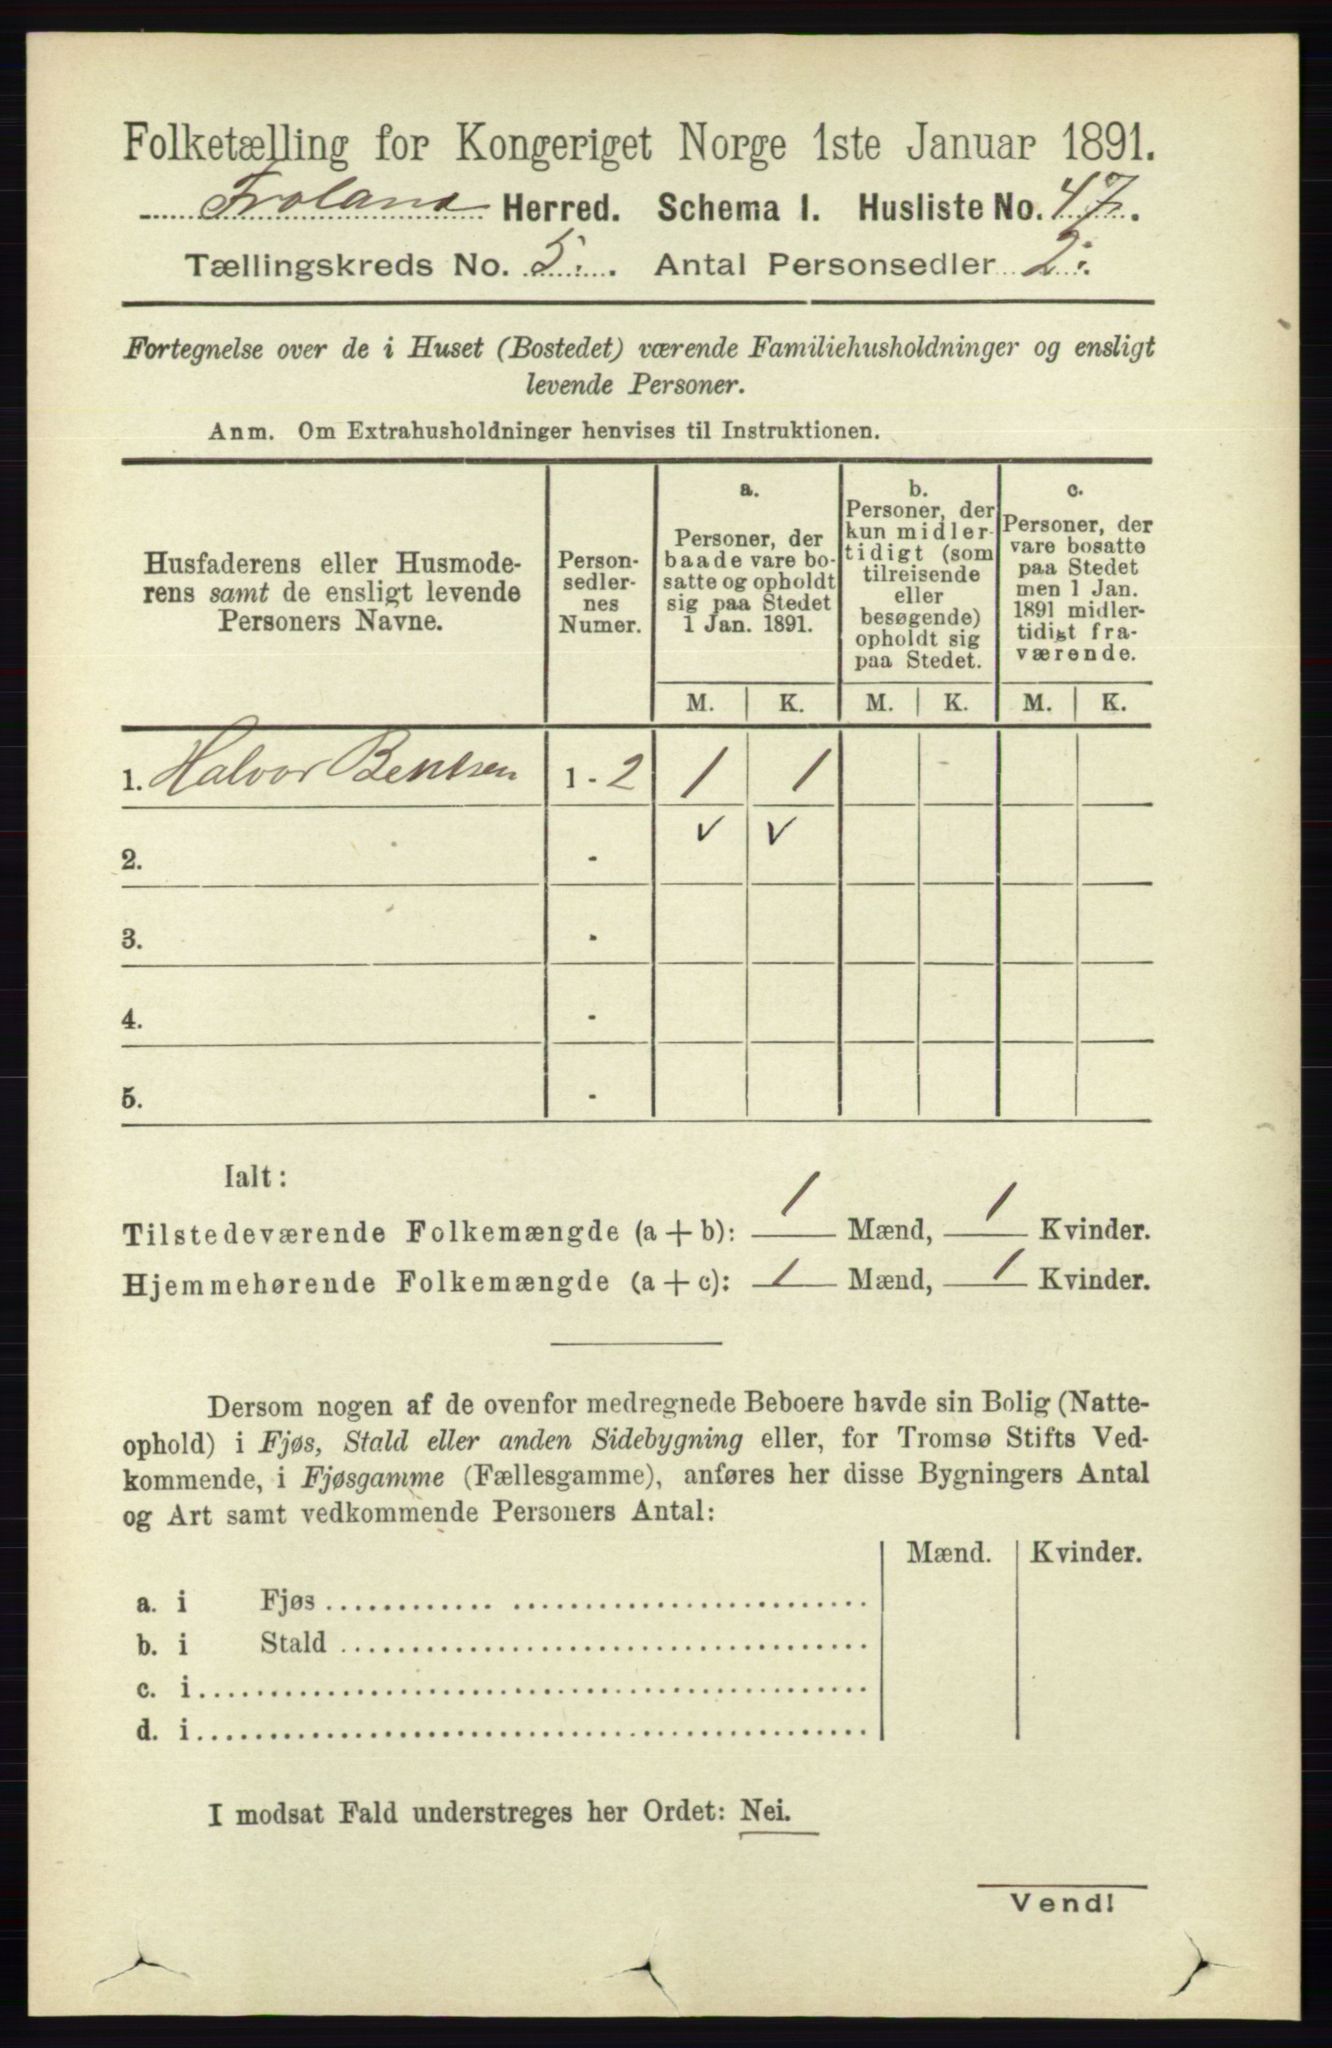 Folketælling for Kongeriget Norge 1ste Januar 1891.
Froland Herred. Schema 1. Husliste No. 47.
Tællingskreds No. 5. Antal Personsedler 2.
Fortegnelse over de i Huset (Bostedet) værende Familiehusholdninger og ensligt
levende Personer.
Anm. Om Extrahusholdninger henvises til Instruktionen.
Husfaderens eller Husmode-
rens samt de ensligt levende
Personers Navne.
Person-
sedler-
nes
Numer.
a.
Personer, der
baade vare bo-
satte og opholdt
sig paa Stedet
1 Jan. 1891.
b.
Personer, der
kun midler-
tidigt (som
tilreisende
eller
besøgende)
opholdt sig
paa Stedet.
c.
Personer, der
vare bosatte
paa Stedet
men 1 Jan.
1891 midler-
tidigt fra-
værende.
M. K. M. K. M. K.
1. Halvor Bentsen 1 - 2 1 1
2. - v v
3. -
4. -
5. -
Ialt:
Tilstedeværende Folkemængde (a + b): 1 Mænd, 1 Kvinder.
Hjemmehørende Folkemængde (a + c): 1 Mænd, 1 Kvinder.
Dersom nogen af de ovenfor medregnede Beboere havde sin Bolig (Natte-
ophold) i Fjøs, Stald eller anden Sidebygning eller, for Tromsø Stifts Ved-
kommende, i Fjøsgamme (Fællesgamme), anføres her disse Bygningers Antal
og Art samt vedkommende Personers Antal:
Mænd. Kvinder.
a. i Fjøs
b. i Stald
c. i
d. i
I modsat Fald understreges her Ordet: Nei.
Vend!